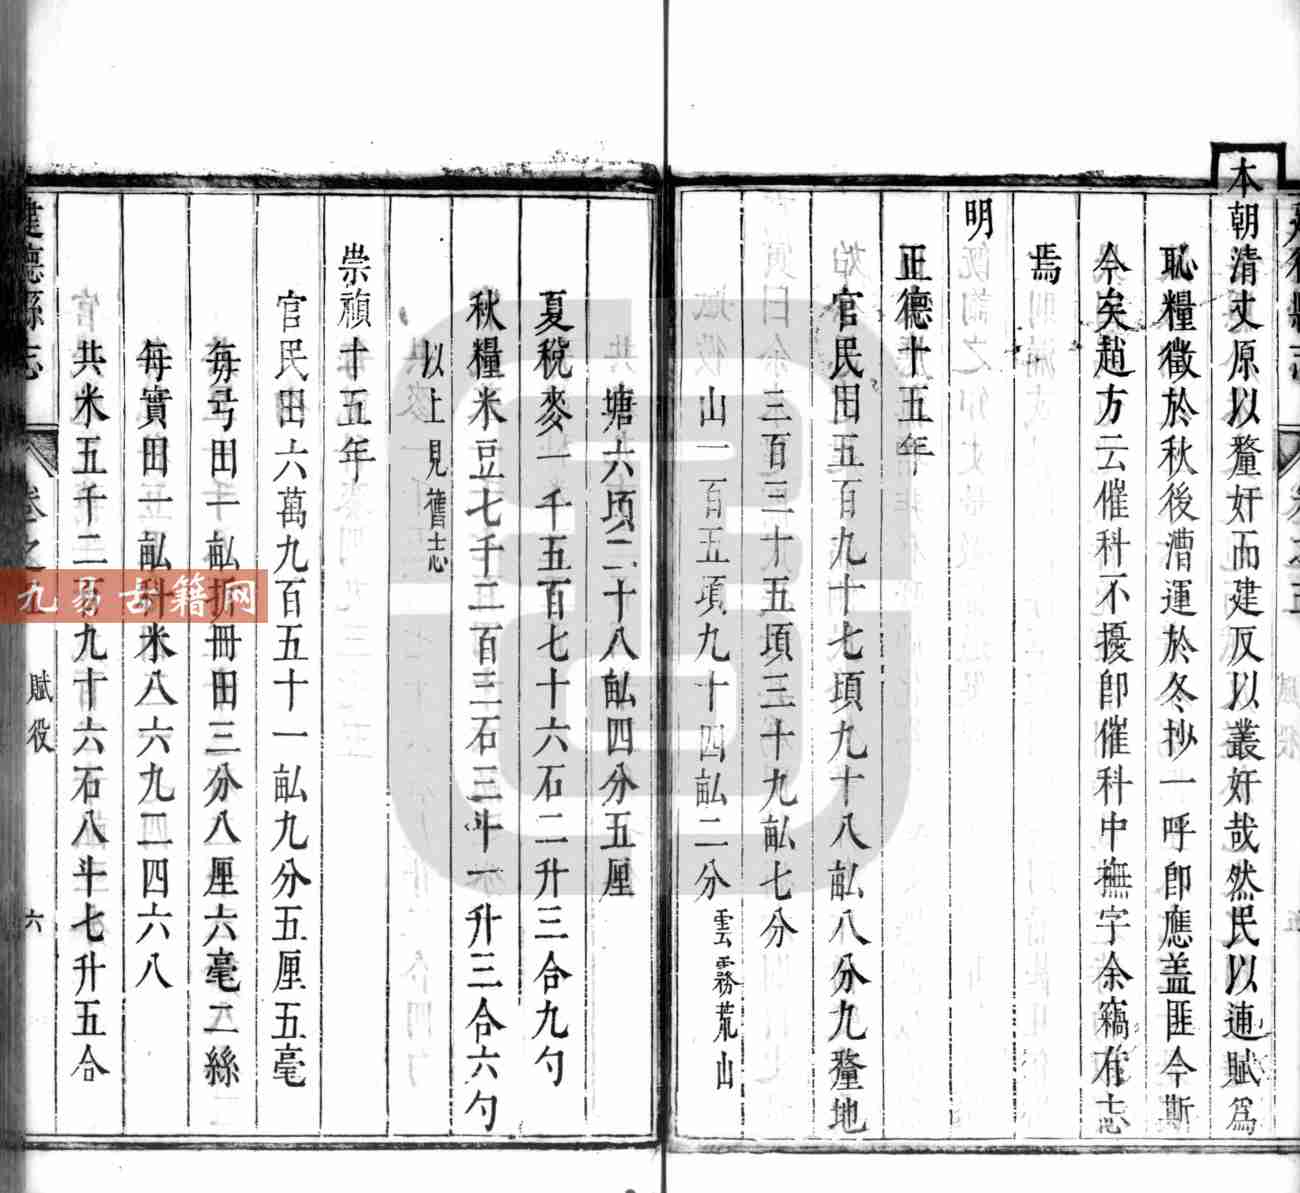 本朝清丈原以釐奸而建反以叢奸哉然民以逋賦爲
恥糧徵於秋後漕運於冬抄一呼卽應盖匪今斯
今矣趙方云催科不擾卽催科中撫字余竊有志
焉
明
正德十五年
官民田五百九十七頃九十八畆八分九釐地
三百三十五頃三十九畆七分
山一百五頃九十四畆二分雲霧荒山
塘六頃二十八畆四分五厘
夏稅麥一千五百七十六石二升三合九勺
秋糧米豆七千二百三石三斗一升三合六勺
以上見舊志
崇禎十五年
官民田六萬九百五十一畆九分五厘五毫
每弓田一畆折冊田三分八厘六毫二絲
每實田一畆科米八六九二四六八
共米五千二百九十六石八斗七升五合
建德縣志
卷之五
賦役
六
九易古籍网